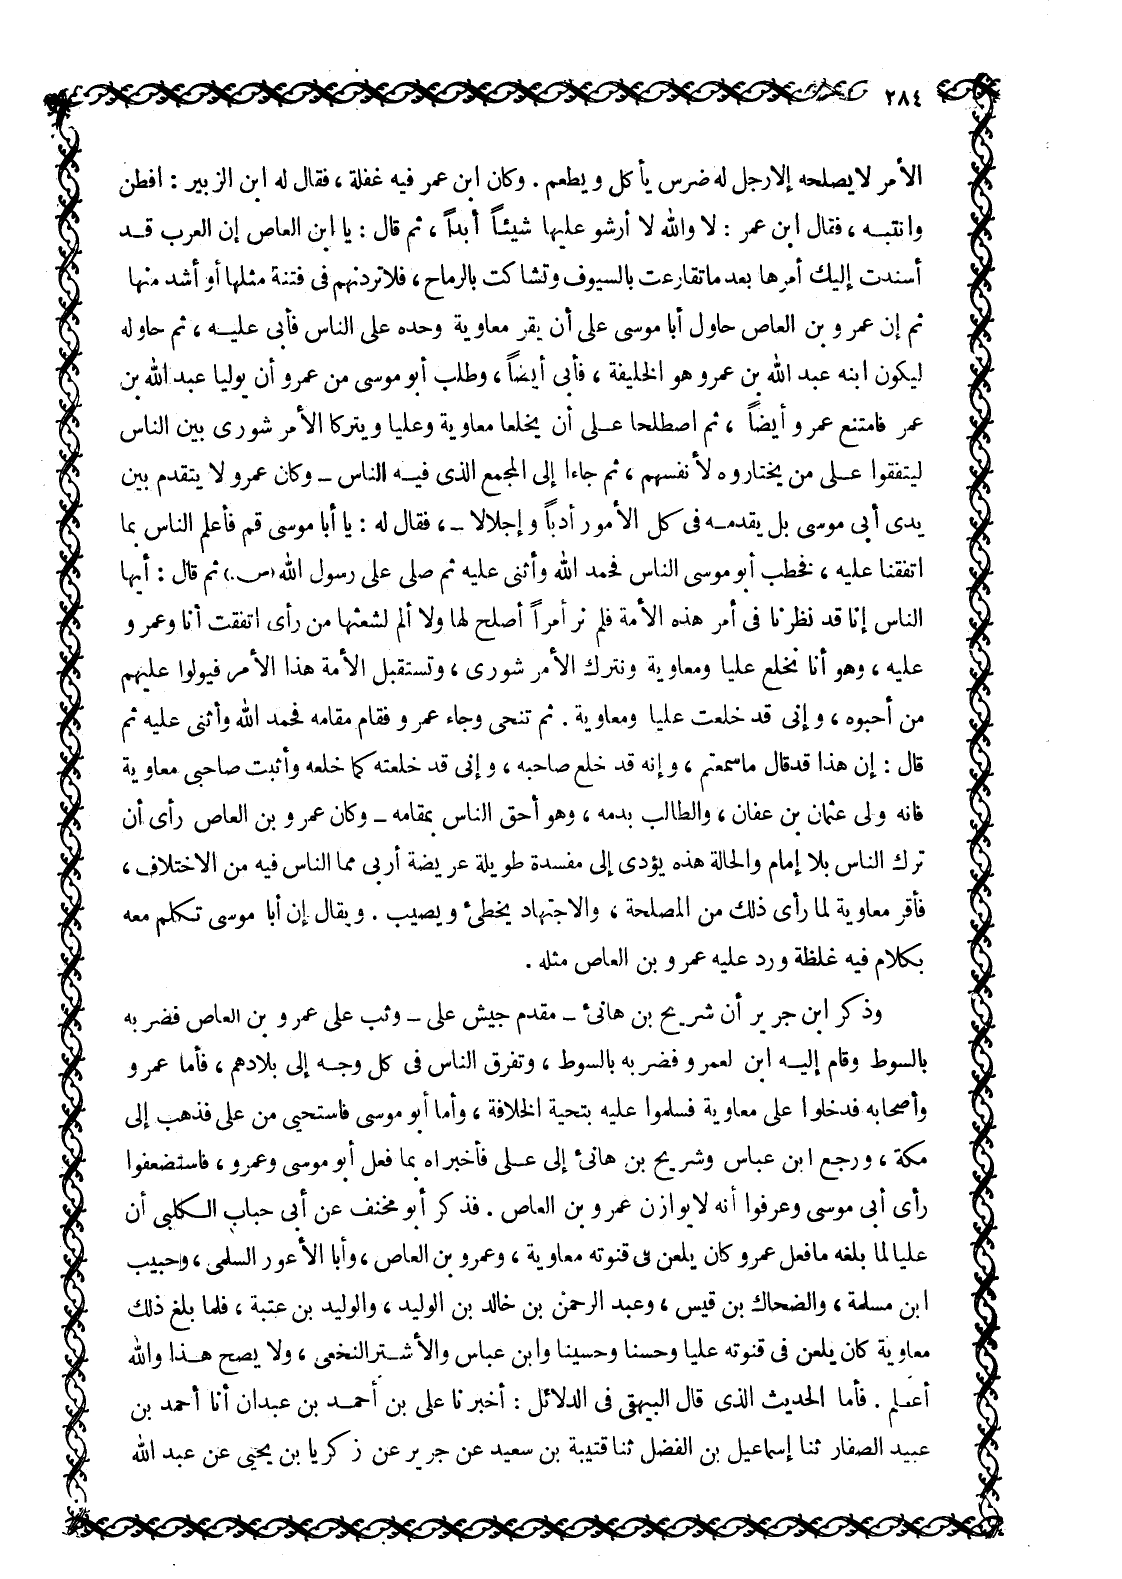 ٢٨٤
الأمر لا يصلحه إلا رجل له ضرس يأكل ويطعم . وكان ابن عمر فيه غفلة ، فقال له ابن الزبير : افطن
وانتبه ، فقال ابن عمر : لا والله لا أرشو عليها شيئاً أبداً ، ثم قال : يا ابن العاص إن العرب قد
أسندت إليك أمرها بعد ما تقارعت بالسيوف وتشاكت بالرماح ، فلا تردنهم فى فتنة مثلها أو أشد منها
ثم إن عمرو بن العاص حاول أبا موسى على أن يقر معاوية وحده على الناس فأبى عليه ، ثم حاوله
ليكون ابنه عبد الله بن عمرو هو الخليفة ، فأبى أيضاً ، وطلب أبو موسى من عمرو أن يوليا عبد الله بن
عمر فامتنع عمرو أيضاً ، ثم اصطلحا على أن يخلعا معاوية وعليا ويتركا الأمر شورى بين الناس
ليتفقوا على من يختاروه لأنفسهم ، ثم جاءا إلى المجمع الذى فيه الناس ــ وكان عمرو لا يتقدم بين
يدى أبى موسى بل يقدمه فى كل الأمور أدباً وإجلالا ــ ، فقال له : يا أبا موسى قم فأعلم الناس بما
اتفقنا عليه ، فخطب أبو موسى الناس فحمد الله وأثنى عليه ثم صلى على رسول الله (ص.) ثم قال : أيها
الناس إنا قد نظرنا فى أمر هذه الأمة فلم نر أمراً أصلح لها ولا ألم لشعثها من رأى اتفقت أنا وعمرو
عليه ، وهو أنا نخلع عليا ومعاوية ونترك الأمر شورى ، وتستقبل الأمة هذا الأمر فيولوا عليهم
من أحبوه ، وإنى قد خلعت عليا ومعاوية . ثم تنحى وجاء عمرو فقام مقامه فحمد الله وأثنى عليه ثم
قال : إن هذا قد قال ما سمعتم ، وإنه قد خلع صاحبه ، وإنى قد خلعته كما خلعه وأثبت صاحبى معاوية
فانه ولى عثمان بن عفان ، والطالب بدمه ، وهو أحق الناس بمقامه ــ وكان عمرو بن العاص رأى أن
ترك الناس بلا إمام والحالة هذه يؤدى إلى مفسدة طويلة عريضة أربى مما الناس فيه من الاختلاف ،
فأقر معاوية لما رأى ذلك من المصلحة ، والاجتهاد يخطئ ويصيب . ويقال إن أبا موسى تكلم معه
بكلام فيه غلظة ورد عليه عمرو بن العاص مثله .
وذكر ابن جرير أن شريح بن هانئ ــ مقدم جيش على ــ وثب على عمرو بن العاص فضربه
بالسوط وقام إليه ابن لعمرو فضربه بالسوط ، وتفرق الناس فى كل وجه إلى بلادهم ، فأما عمرو
وأصحابه فدخلوا على معاوية فسلموا عليه بتحية الخلافة ، وأما أبو موسى فاستحيى من على فذهب إلى
مكة ، ورجع ابن عباس وشريح بن هانئ إلى على فأخبراه بما فعل أبو موسى وعمرو ، فاستضعفوا
رأى أبى موسى وعرفوا أنه لا يوازن عمرو بن العاص . فذكر أبو مخنف عن أبى حباب الكلبى أن
عليا لما بلغه ما فعل عمرو كان يلعن فى قنوته معاوية ، وعمرو بن العاص ، وأبا الأعور السلمى ، وحبيب
ابن مسلمة ، والضحاك بن قيس ، وعبد الرحمن بن خالد بن الوليد ، والوليد بن عتبة ، فلما بلغ ذلك
معاوية كان يلعن فى قنوته عليا وحسنا وحسينا وابن عباس والأشتر النخعى ، ولا يصح هذا والله
أعلم . فأما الحديث الذى قال البيهقى فى الدلائل : أخبرنا على بن أحمد بن عبدان أنا أحمد بن
عبيد الصفار ثنا إسماعيل بن الفضل ثنا قتيبة بن سعيد عن جرير عن زكريا بن يحيى عن عبد الله